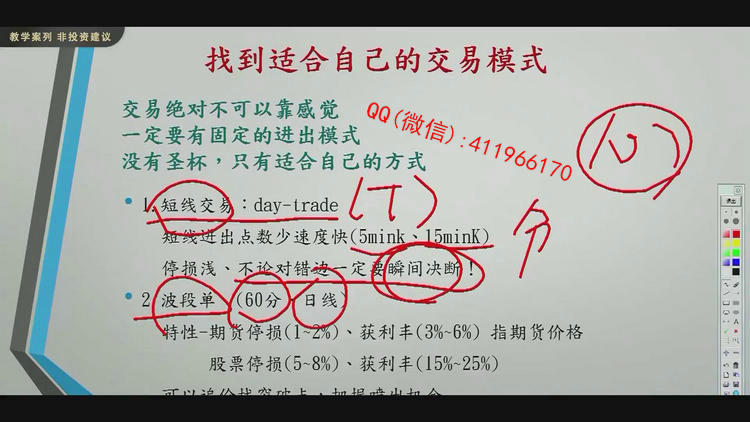 教学案列 非投资建议
找到适合自己的交易模式
交易绝对不可以靠感觉
一定要有固定的进出模式
没有圣杯，只有适合自己的方式
QQ(微信):411966170
• 1.短线交易：day-trade (T)
短线进出点数少速度快(5mink、15minK)
停损浅、不论对错边一定要瞬间决断！
• 2 波段单 (60分、日线)
特性-期货停损(1~2%)、获利丰(3%~6%) 指期货价格
股票停损(5~8%)、获利丰(15%~25%)